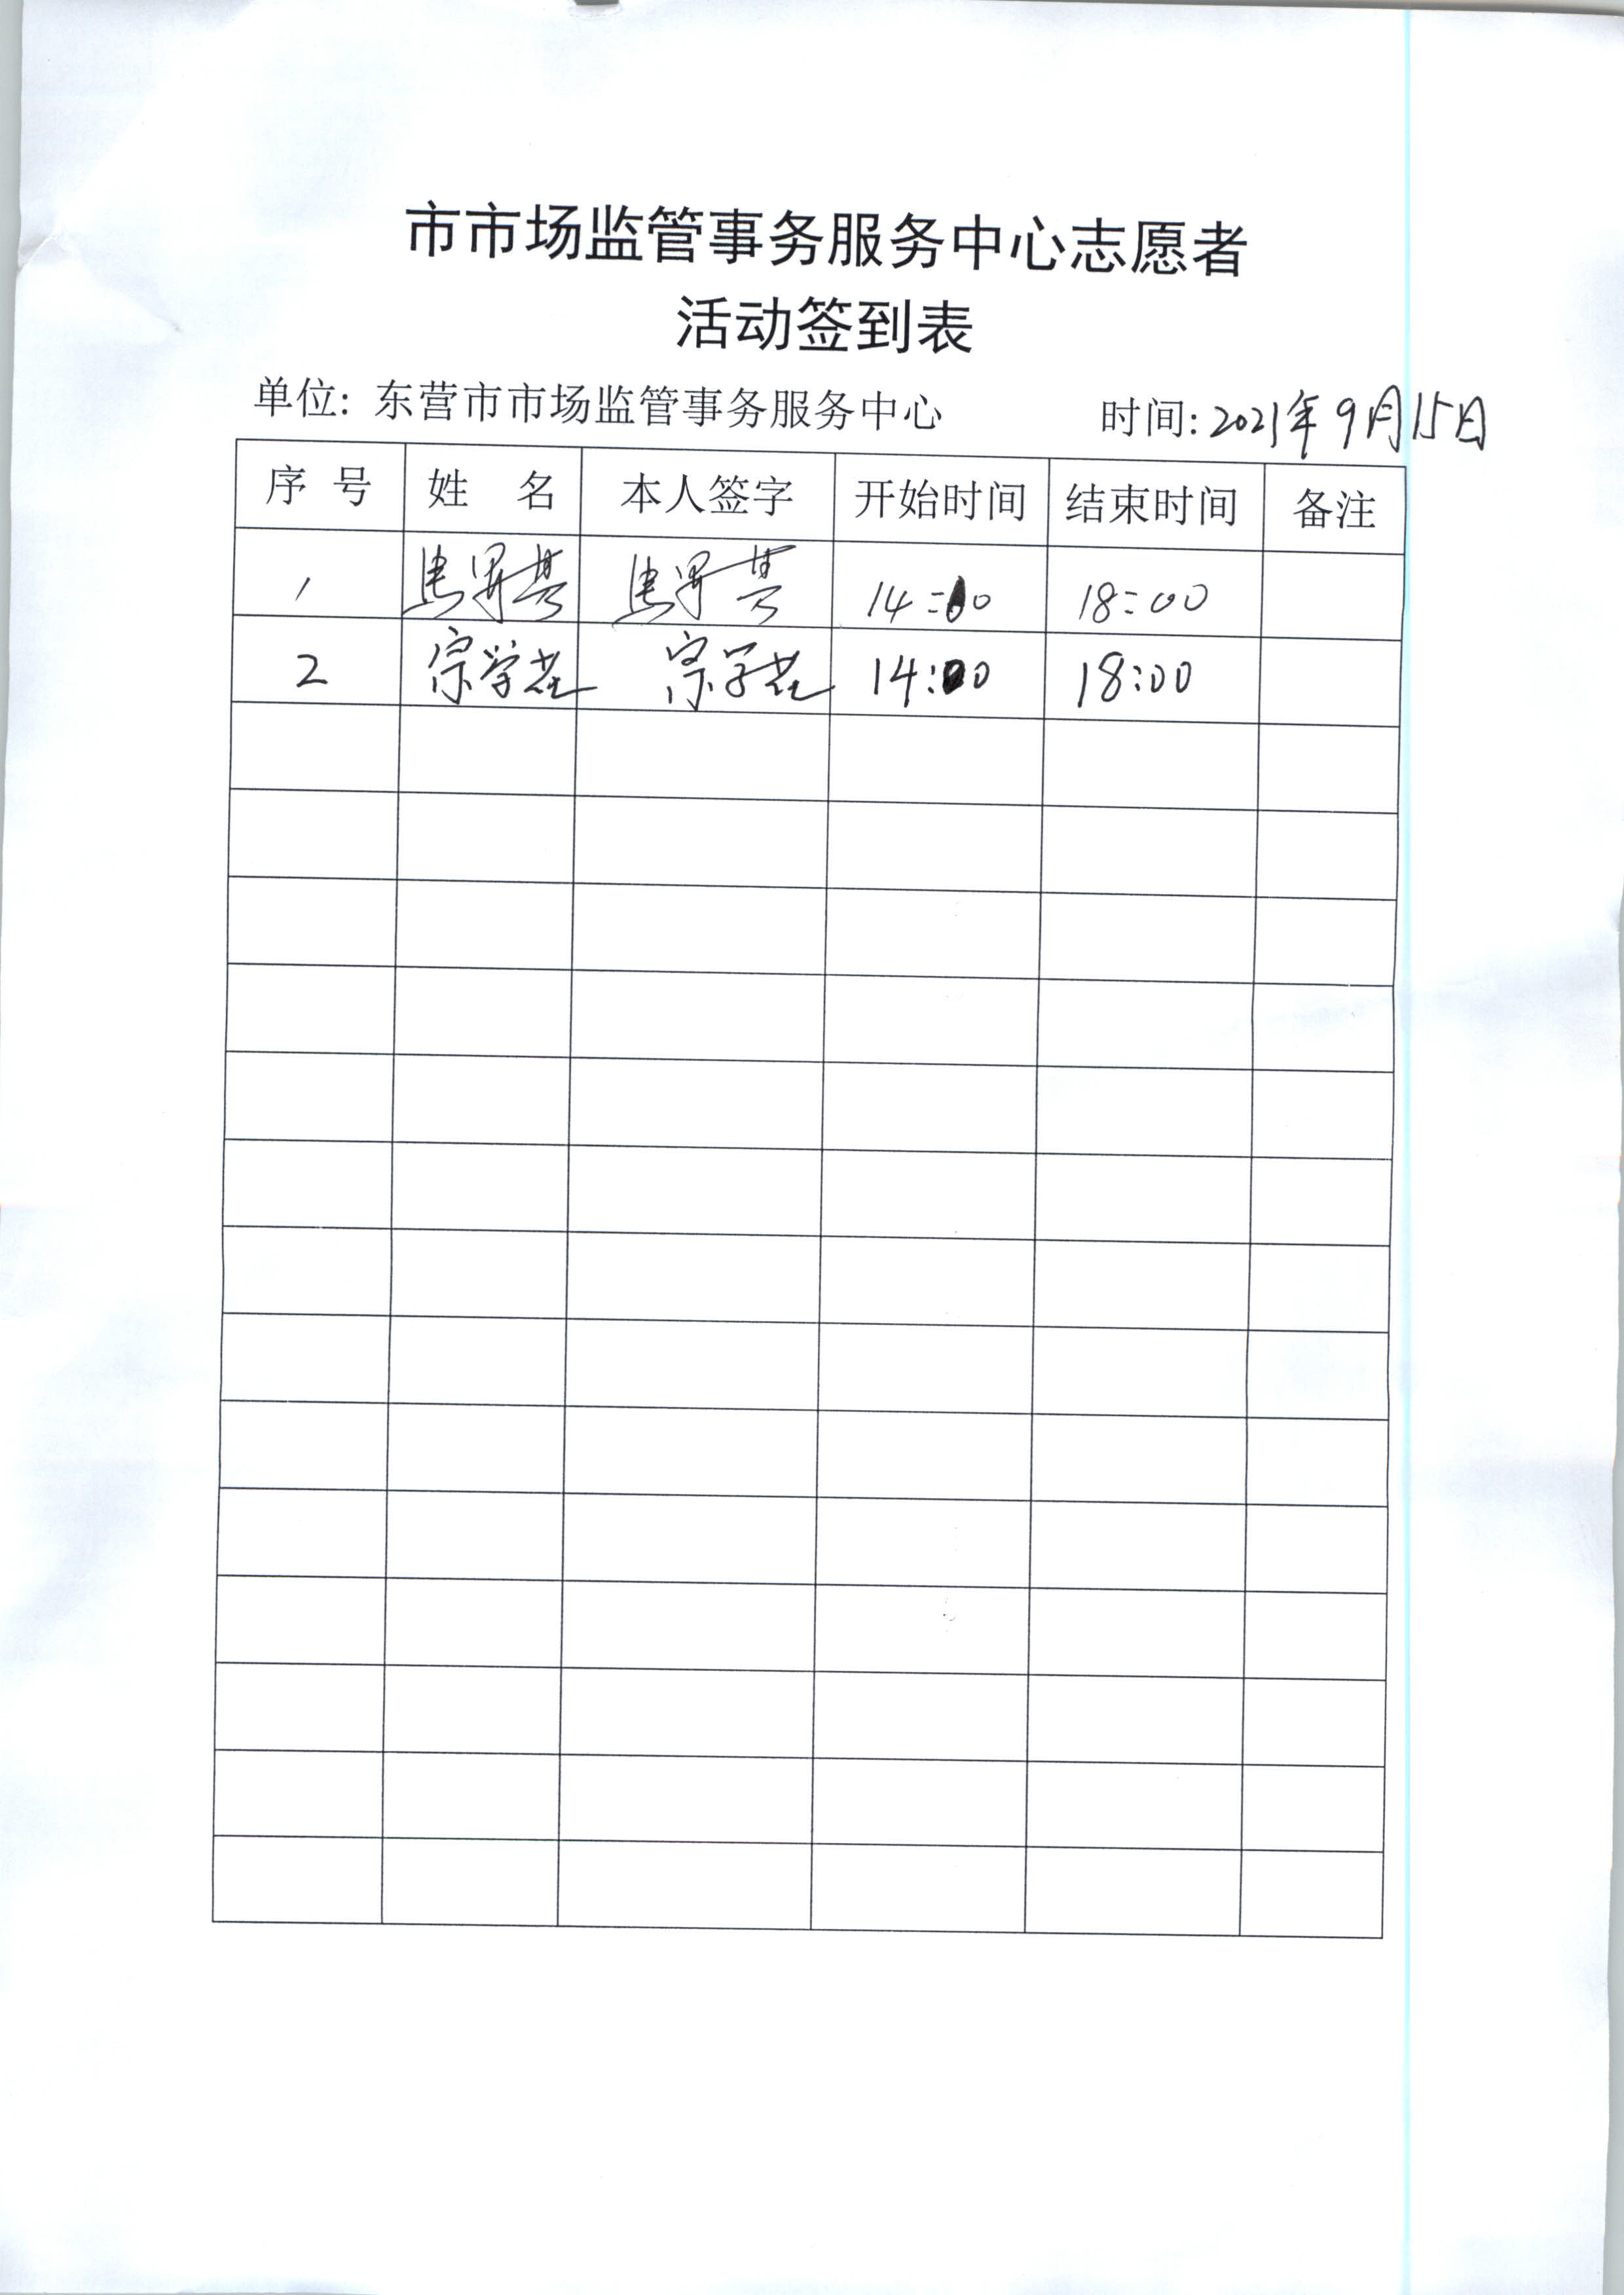 市市场监管事务服务中心志愿者
活动签到表
单位: 东营市市场监管事务服务中心 时间: 2021年9月15日
序 号 姓 名 本人签字 开始时间 结束时间 备注
1 14:00 18:00
2 宗学花 宗学花 14:00 18:00